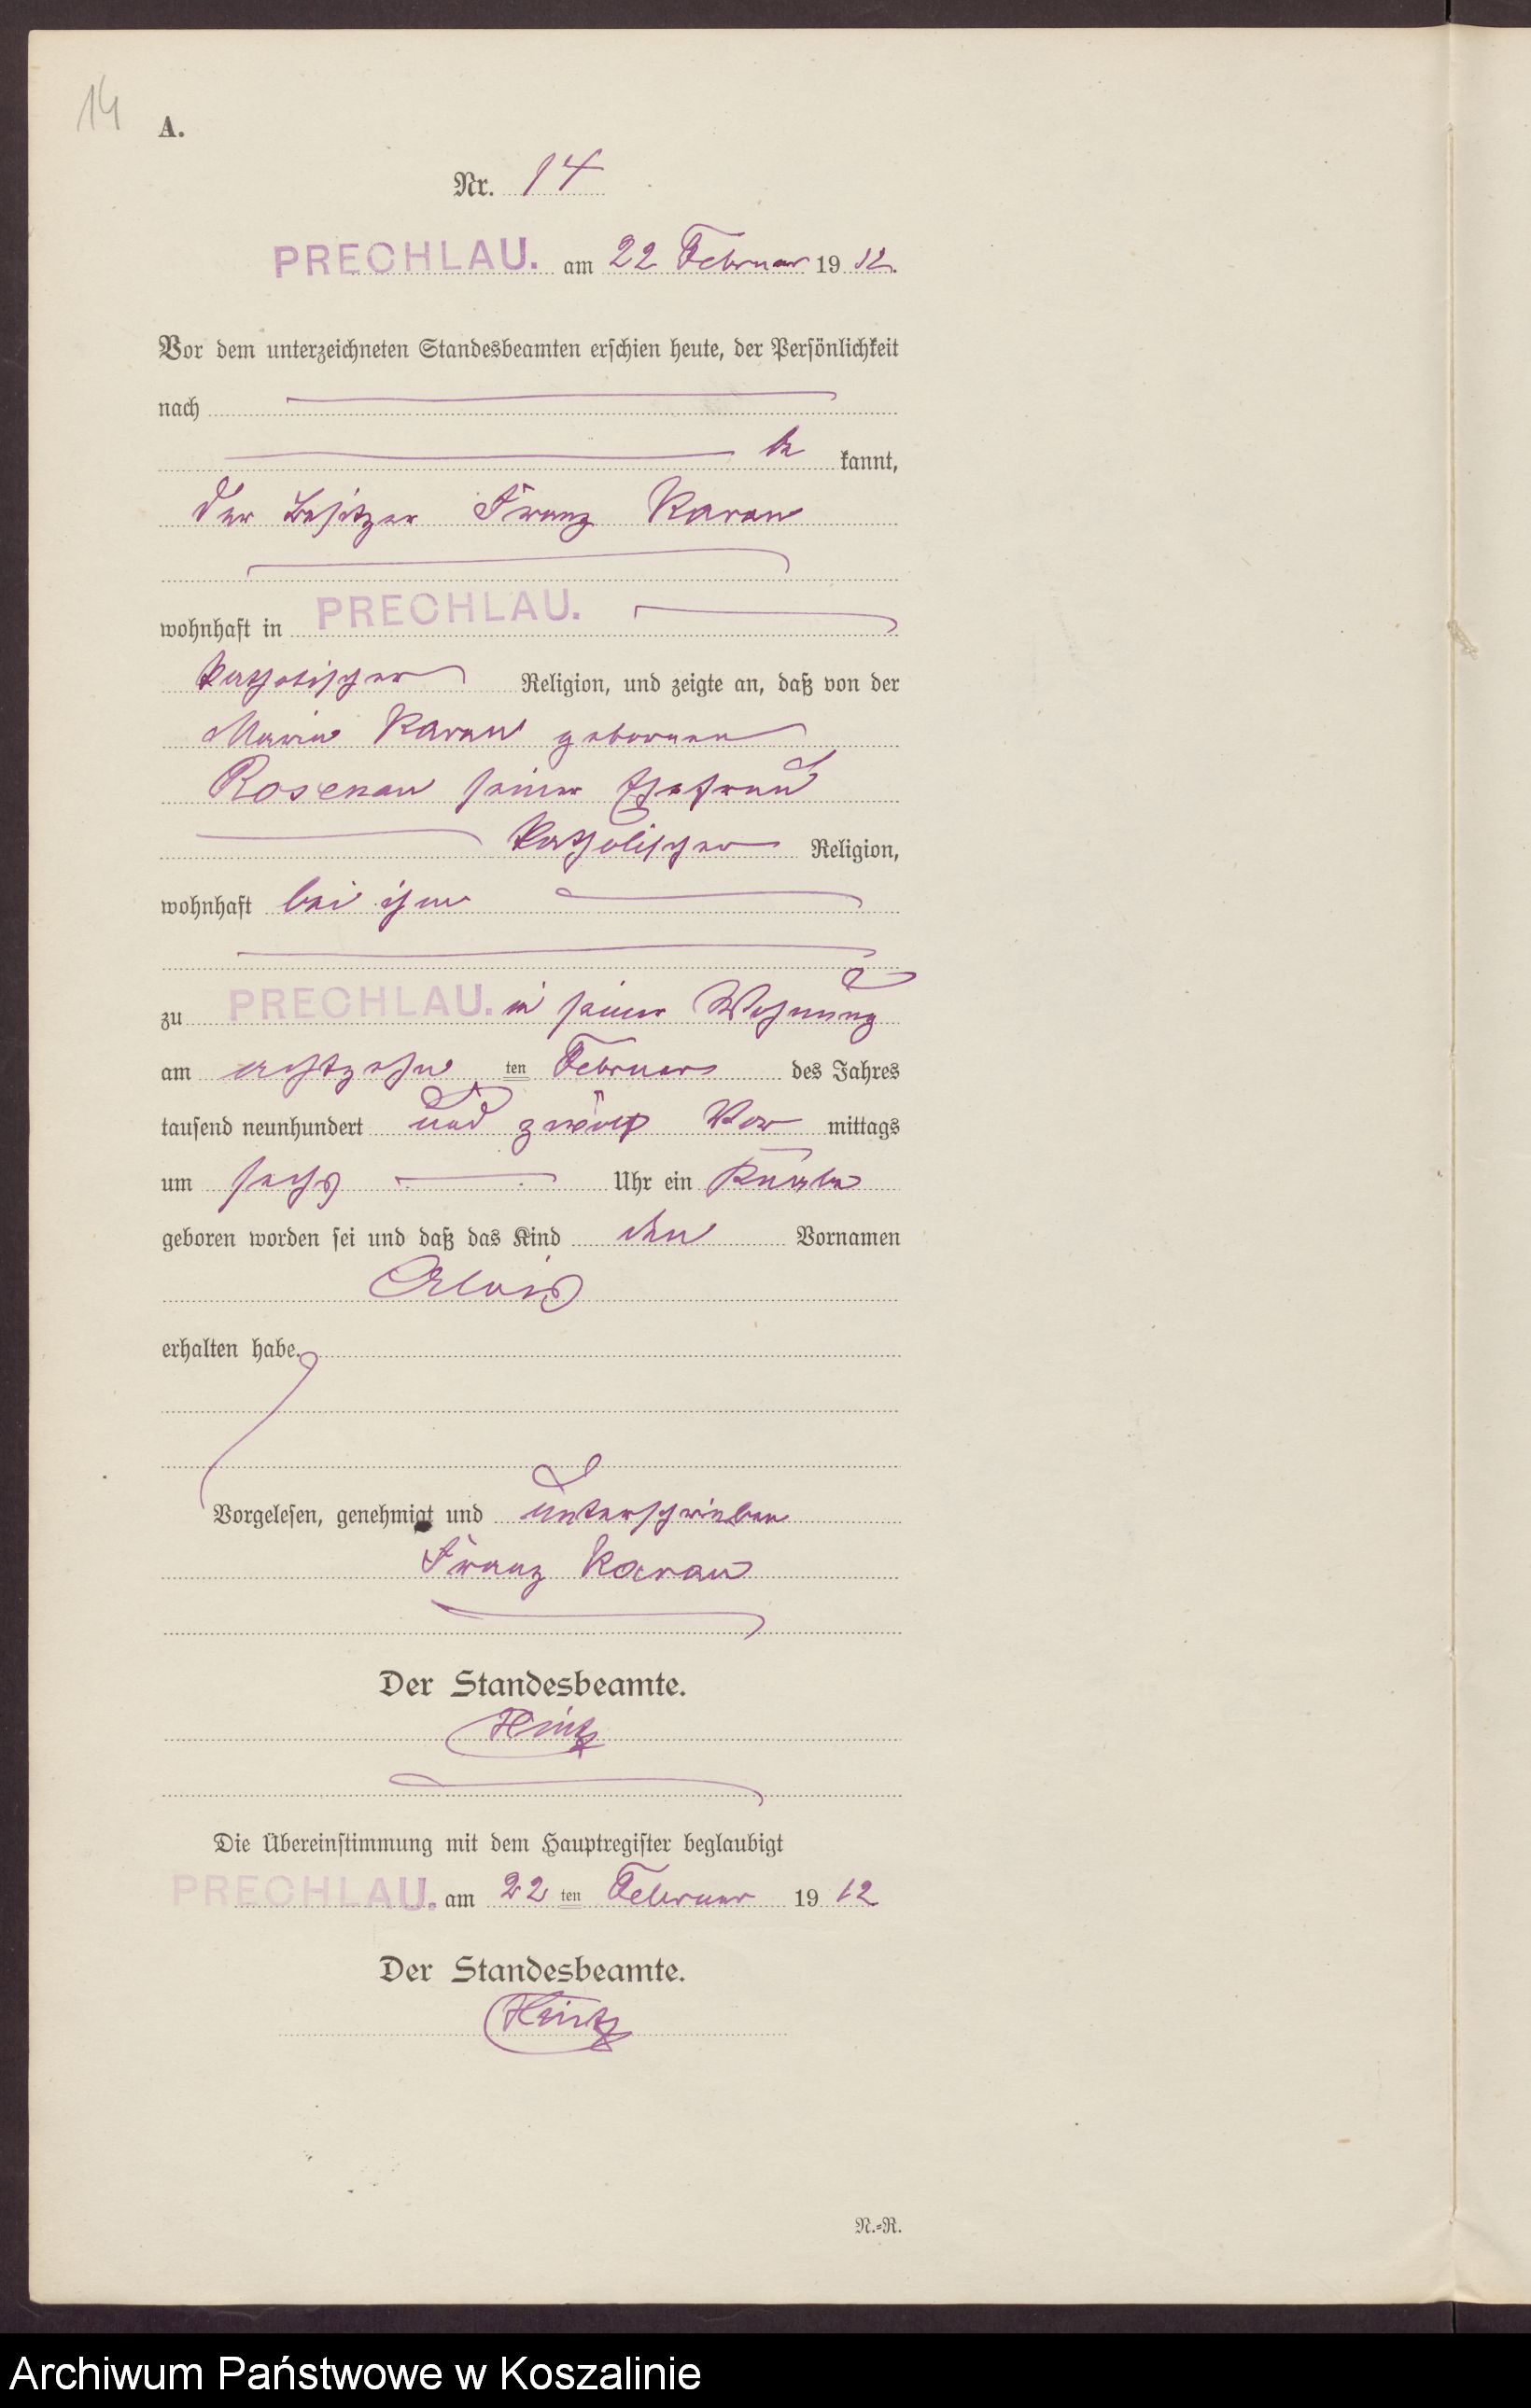 14
A.
Nr. 14
PRECHLAU. am 22 Februar 19 12.
Vor dem unterzeichneten Standesbeamten erschien heute, der Persönlichkeit
nach
be kannt,
der Besitzer Franz Karau
wohnhaft in PRECHLAU.
katholischer Religion, und zeigte an, daß von der
Maria Karau geborenen
Rosenau seiner Ehefrau
katholischer Religion,
wohnhaft bei ihm
zu PRECHLAU. in seiner Wohnung
am achtzehn ten Februar des Jahres
tausend neunhundert und zwölf Vor mittags
um sechs Uhr ein Knabe
geboren worden sei und daß das Kind den Vornamen
Alois
erhalten habe.
Vorgelesen, genehmigt und unterschrieben
Franz Karau
Der Standesbeamte.
Hintz
Die Übereinstimmung mit dem Hauptregister beglaubigt
PRECHLAU. am 22 ten Februar 19 12
Der Standesbeamte.
Hintz
N.=R.
Archiwum Państwowe w Koszalinie